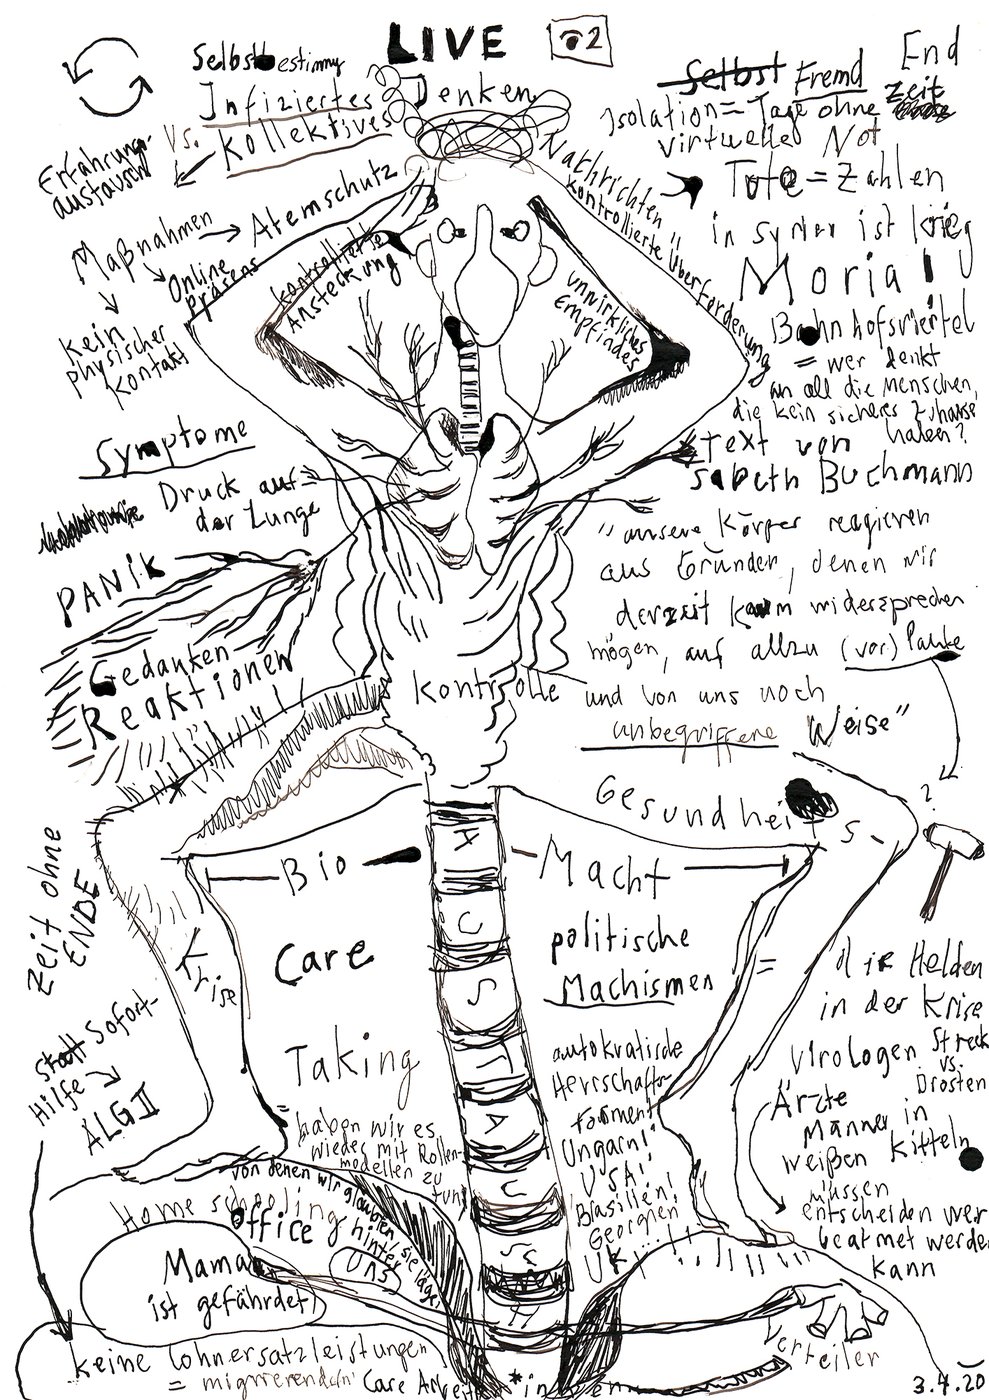 LIVE
2
Selbstbestimmg
Infiziertes Denken
vs. Kollektives
Erfahrungs-
austausch
Maßnahmen
Atemschutz
Online
Präsens
kontrollierte
Ansteckung
kein
physischer
Kontakt
Symptome
Druck auf
der Lunge
PANIK
Gedanken-
Reaktionen
Nachrichten
kontrollierte Überforderung
unwirkliches
Empfinden
Selbst Fremd
End
Zeit
Isolation = Tage ohne
virtuelle Not
Tote = Zahlen
in Syrien ist Krieg
Moria!
Bahnhofsviertel
= wer denkt
an all die Menschen,
die kein sicheres Zuhause
haben?
Text von
Sabeth Buchmann
"unsere Körper reagieren
aus Gründen, denen wir
derzeit kaum widersprechen
mögen, auf allzu (vor)
und von uns noch
unbegriffene Weise"
Kontrolle
Gesundheit
S -
?
Bio - Macht
politische
Machismen
=
die Helden
in der Krise
Virologen Streeck
vs.
Drosten
Ärzte
Männer in
weißen Kitteln
müssen
entscheiden wer
beatmet werden
kann
autokratische
Herrschafts-
formen
Ungarn!
USA!
Brasilien!
Georgien!
UK!
Care
Taking
=
haben wir es
wieder mit Rollen-
modellen zu
tun,
von denen wir glaubten, sie lägen
hinter
UNS
Zeit ohne
ENDE
Krise
Statt Sofort-
Hilfe
ALG II
Home schooling
Office
Mama
ist gefährdet
keine Lohnersatzleistungen
Verteiler
3.4.20